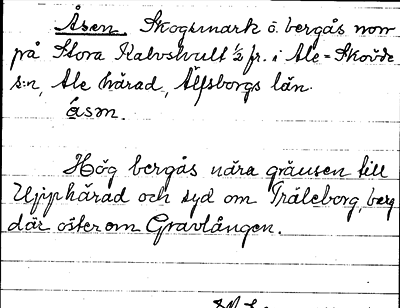 Åsen. Skogsmark ö. bergås norr
på Stora Kalvshult ½ fr. i Ale-Skövde
s:n, Ale härad, Älfsborgs län.
åsm.
Hög bergås nära gränsen till
härad och syd om Träleborg, berg
där öster om Gravlången.